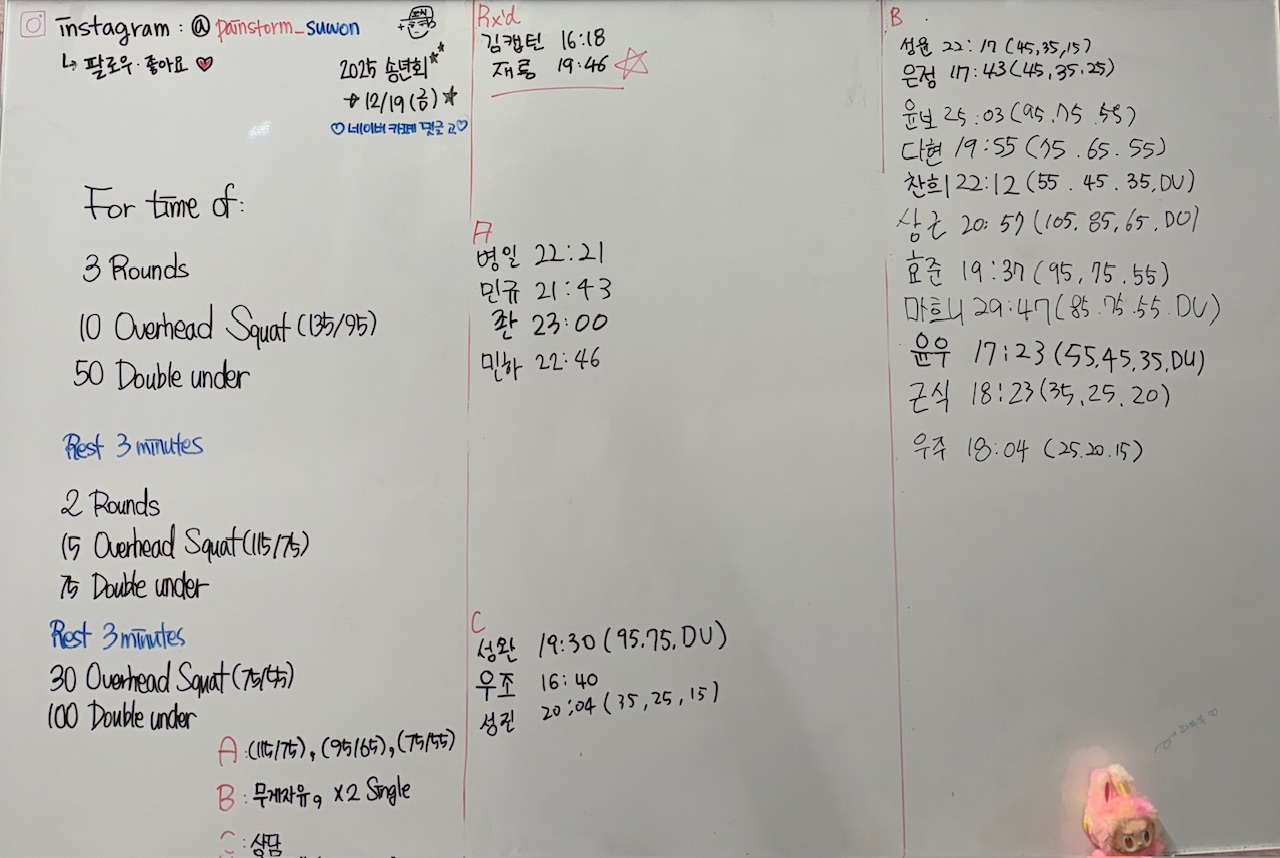 instagram : @ painstorm_suwon
↳ 팔로우·좋아요 ♡
2025 송년회
→ 12/19 (금)
♡ 네이버 카페 댓글 고 ♡
For time of:
3 Rounds
10 Overhead Squat (135/95)
50 Double under
Rest 3 minutes
2 Rounds
15 Overhead Squat (115/75)
75 Double under
Rest 3 minutes
30 Overhead Squat (75/55)
100 Double under
A : (115/75), (95/65), (75/55)
B : 무게자유, X2 Single
C : 상담
Rx'd
김캡틴 16:18
재룡 19:46
A
병일 22:21
민규 21:43
좐 23:00
민하 22:46
C
성완 19:30 (95.75, DU)
우조 16:40
성진 20:04 (35, 25, 15)
B
성윤 22:17 (45,35,15)
은정 17:43 (45, 35.25)
윤보 25:03 (95.75.55)
다현 19:55 (75.65.55)
찬희 22:12 (55.45.35, DU)
상근 20:57 (105.85,65.DU)
효준 19:37 (95,75.55)
마흐니 29:47 (85.75.55.DU)
윤우 17:23 (55,45,35,DU)
근식 18:23 (35,25.20)
우주 18:04 (25.20.15)